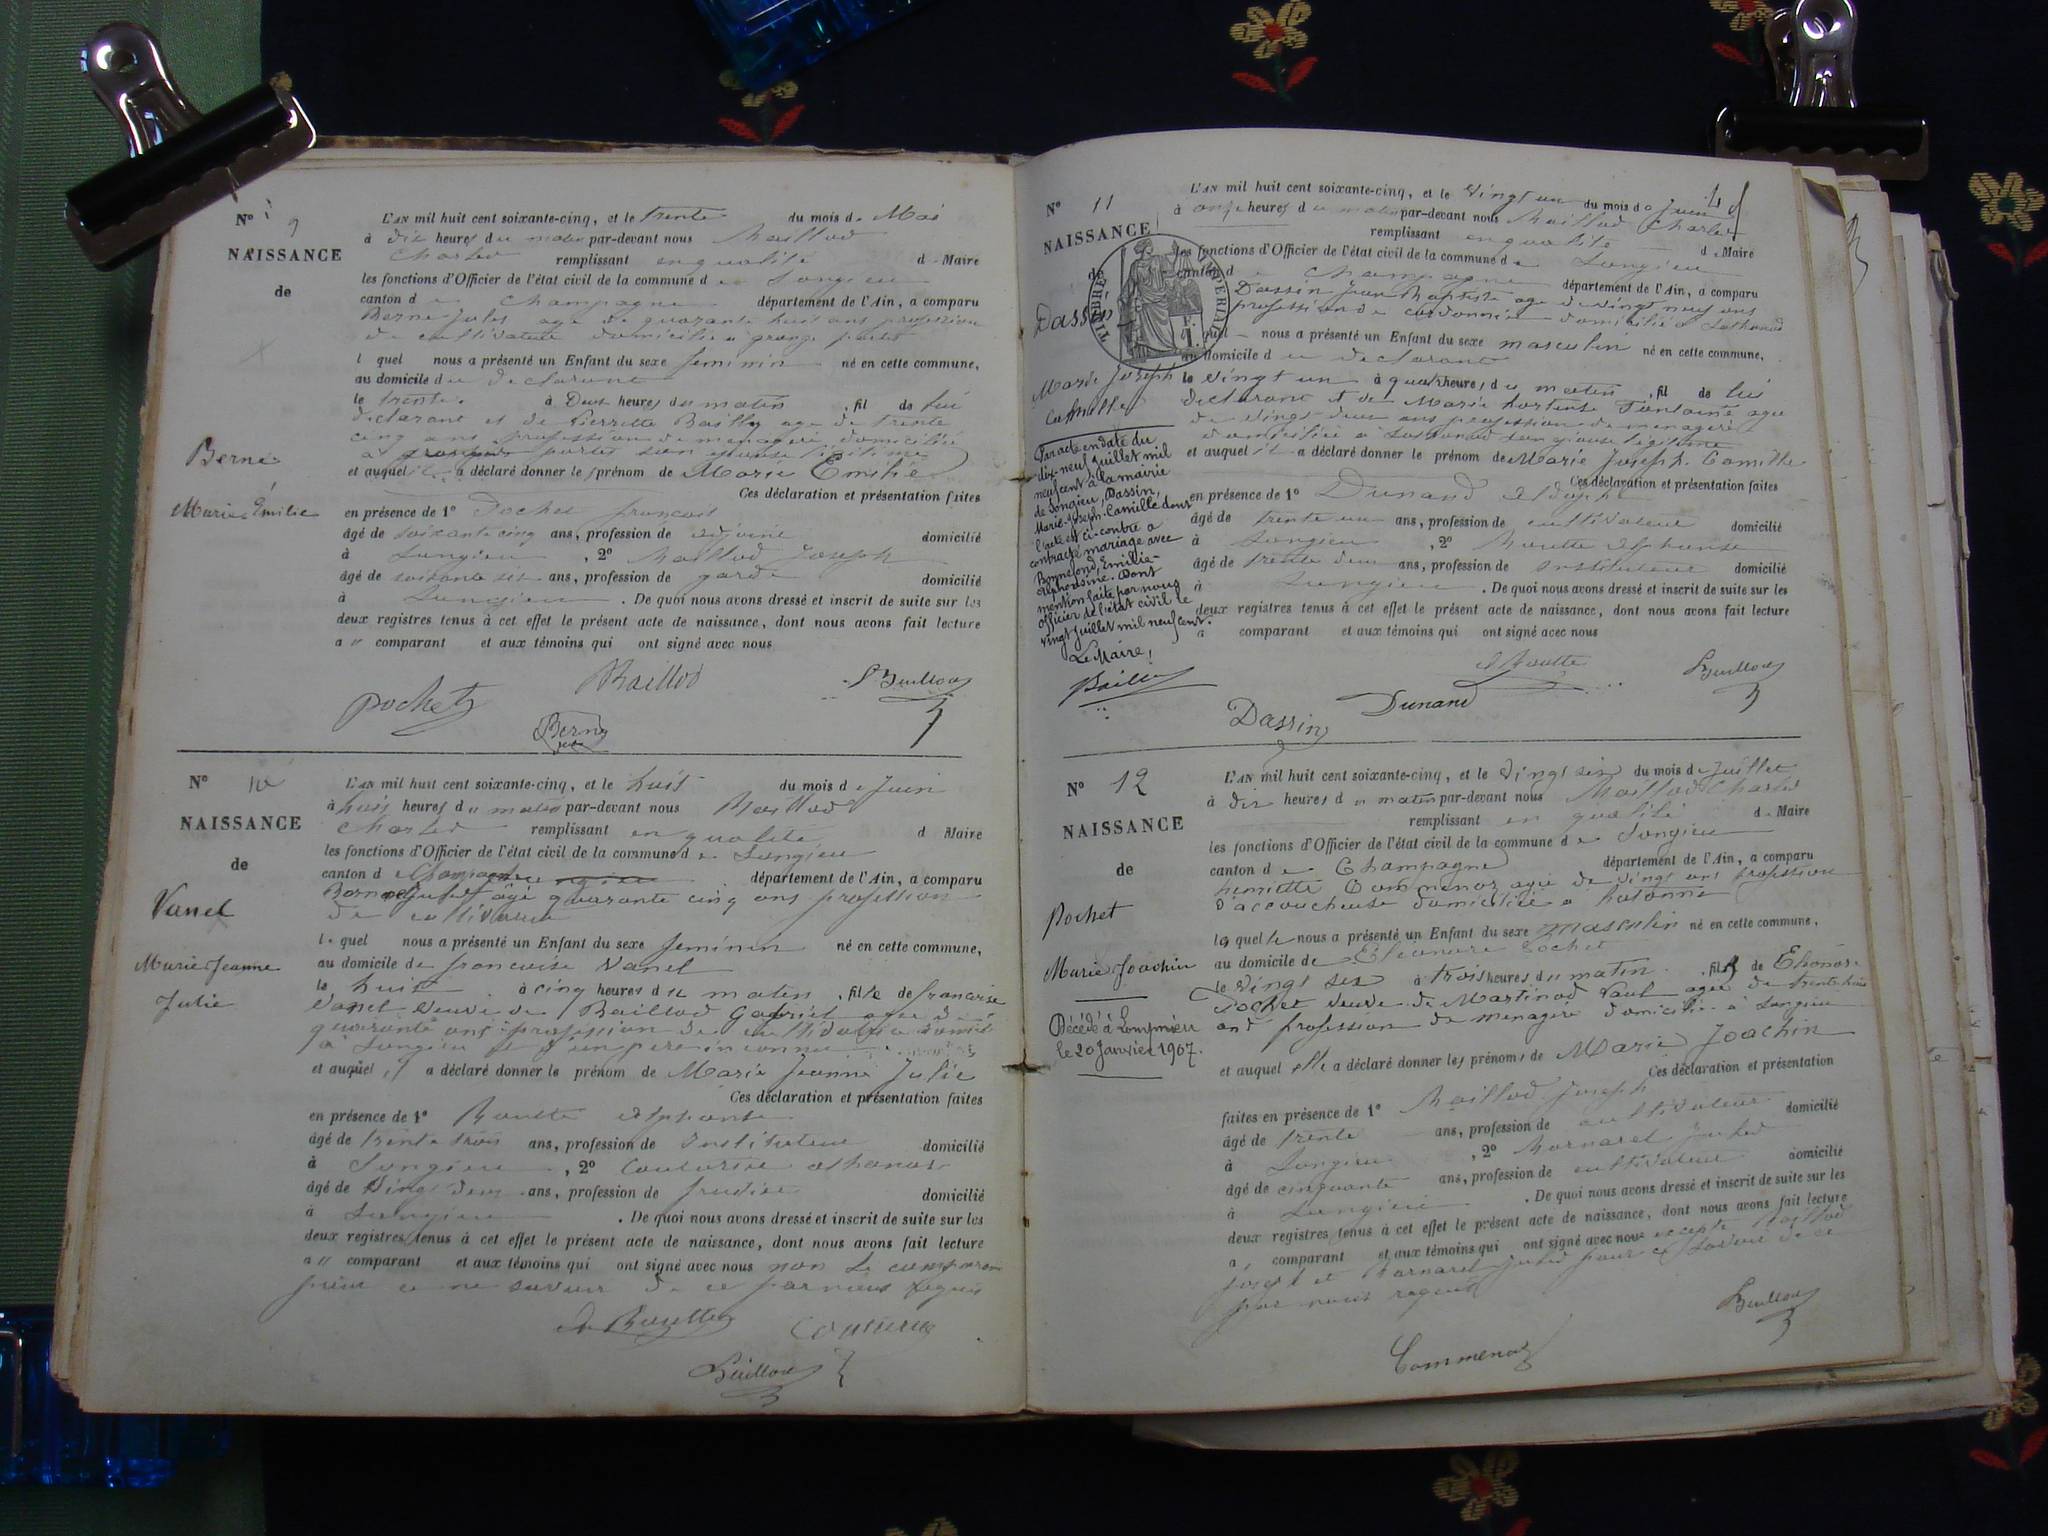 N° 9
NAISSANCE
de
Berne
Marie Émilie
L'AN mil huit cent soixante-cinq, et le trente du mois de Mai
à dix heures du matin par-devant nous Maillod
Charles remplissant en qualité de Maire
les fonctions d'Officier de l'état civil de la commune de Songieu
canton de Champagne département de l'Ain, a comparu
Berne Jules age de quarante huit ans profession
de cultivateur domicilié a grange
lequel nous a présenté un Enfant du sexe feminin né en cette commune,
au domicile du declarant
le trente à Deux heures du matin, fil de lui
declarant et de Pierrette Bailly age de trente
cinq ans profession de menagere domiciliée
a portes son epouse legitime
et auquel il a déclaré donner le prénom de Marie Emilie
Ces déclaration et présentation faites
en présence de 1° Pochet francois
âgé de soixante cinq ans, profession de domicilié
à Songieu, 2° Maillod Joseph
âgé de soixante six ans, profession de garde domicilié
à Songieu. De quoi nous avons dressé et inscrit de suite sur les
deux registres tenus à cet effet le présent acte de naissance, dont nous avons fait lecture
a comparant et aux témoins qui ont signé avec nous
Pochet Maillod
Berne
N° 10
NAISSANCE
de
Vanel
Marie Jeanne
Julie
L'AN mil huit cent soixante-cinq, et le huit du mois de Juin
à huit heures du matin par-devant nous Maillod
Charles remplissant en qualité d Maire
les fonctions d'Officier de l'état civil de la commune de Songieu
canton de Champagne département de l'Ain, a comparu
âgé quarante cinq ans profession
de cultivateur
lequel nous a présenté un Enfant du sexe feminin né en cette commune,
au domicile de francoise Vanel
le huit à cinq heures du matin, fille de francoise
Vanel Veuve de Maillod Gabriel agee de
quarante ans profession de cultivatrice domicilié
a Songieu et d'un pere inconnu
et auquel il a déclaré donner le prénom de Marie Jeanne Julie
Ces déclaration et présentation faites
en présence de 1° Routte alphonse
âgé de trente trois ans, profession de instituteur domicilié
à Songieu, 2° Couturier
âgé de Vingt deux ans, profession de domicilié
à Songieu. De quoi nous avons dressé et inscrit de suite sur les
deux registres tenus à cet effet le présent acte de naissance, dont nous avons fait lecture
a comparant et aux témoins qui ont signé avec nous non le comparant
pour ce ne savoir de ce par nous requis
Routte Couturier
N° 11
NAISSANCE
de
Dassin
Marie Joseph
Camille
Par acte en date du
dix-neuf juillet mil
neuf cent à la mairie
de Songieu, Dassin,
Marie-Joseph-Camille dont
l'acte est ci-contre a
contracté mariage avec
Bonnefond, Emilie-
Euphrosine. Dont
mention faite par nous
officier de l'état civil le
vingt juillet mil neuf cent.
Le Maire,
TIMBRE IMPERIAL
L'AN mil huit cent soixante-cinq, et le Vingt un du mois de Juin
à onze heures du matin par-devant nous Maillod Charles
remplissant en qualité de Maire
les fonctions d'Officier de l'état civil de la commune de Songieu
canton de Champagne département de l'Ain, a comparu
Dassin Jean Baptiste age de vingt neuf ans
profession de cordonnier domicilié a Sothonod
quel nous a présenté un Enfant du sexe masculin né en cette commune,
au domicile du declarant
le Vingt un à quatre heures du matin, fil de lui
declarant et de Marie hortense Fontaine age
de vingt deux ans profession de menagere
domiciliée a Sothonod son epouse legitime
et auquel il a déclaré donner le prénom de Marie Joseph Camille
Ces déclaration et présentation faites
en présence de 1° Dunand
âgé de trente un ans, profession de cultivateur domicilié
à Songieu, 2° Routte alphonse
âgé de trente deux ans, profession de instituteur domicilié
à Songieu. De quoi nous avons dressé et inscrit de suite sur les
deux registres tenus à cet effet le présent acte de naissance, dont nous avons fait lecture
a comparant et aux témoins qui ont signé avec nous
Routte
Dassin Dunand
N° 12
NAISSANCE
de
Pochet
Marie Joachin
Décédé à Lompnieu
le 20 Janvier 1907.
L'AN mil huit cent soixante-cinq, et le Vingt six du mois de Juillet
à dix heures du matin par-devant nous Maillod Charles
remplissant en qualité de Maire
les fonctions d'Officier de l'état civil de la commune de Songieu
canton de Champagne département de l'Ain, a comparu
henriette Commenoz agée de vingt ans profession
d'accoucheuse domiciliée a hotonne
laquelle nous a présenté un Enfant du sexe masculin né en cette commune,
au domicile de Eléonore Pochet
le Vingt six à trois heures du matin, fils de Eléonore
Pochet veuve de Martinod Paul agée de trente huit
ans profession de menagere domicilié à Songieu
et auquel elle a déclaré donner les prénoms de Marie Joachin
Ces déclaration et présentation
faites en présence de 1° Maillod Joseph
âgé de trente ans, profession de cultivateur domicilié
à Songieu, 2° Jules
âgé de cinquante ans, profession de cultivateur domicilié
à Songieu. De quoi nous avons dressé et inscrit de suite sur les
deux registres tenus à cet effet le présent acte de naissance, dont nous avons fait lecture
a comparant et aux témoins qui ont signé avec nous excepté Maillod
Joseph et Jules pour ce savoir de ce
par nous requis
Commenoz